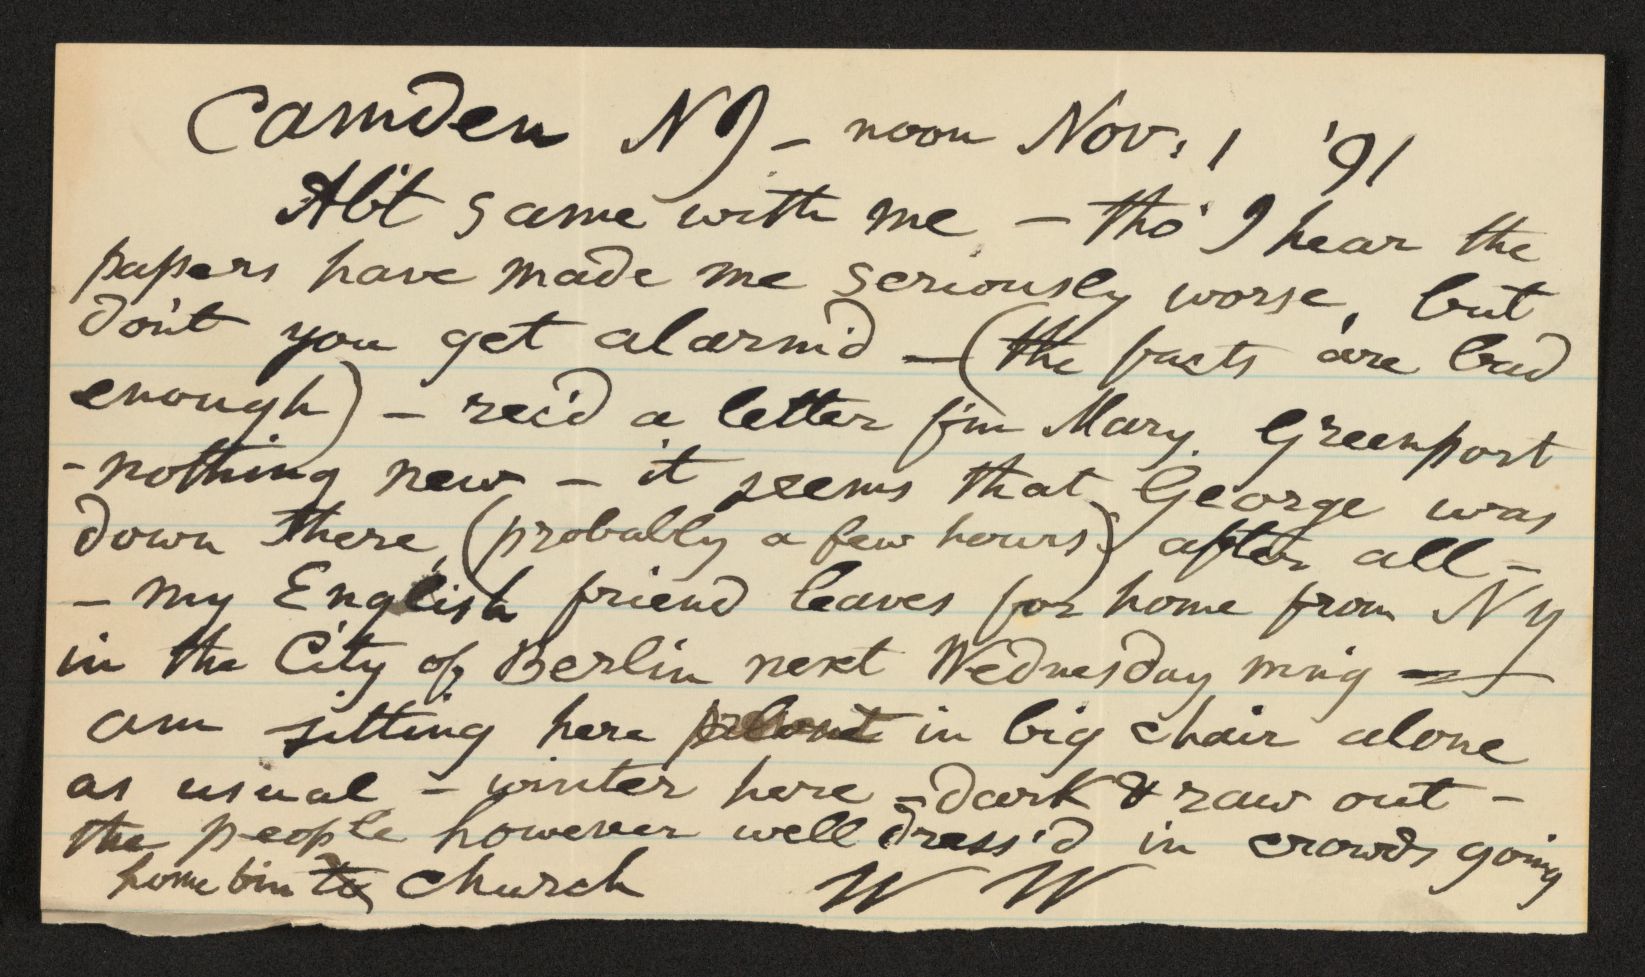 Camden NJ – noon Nov: 1 '91
Ab't same with me – tho' I hear the
papers have made me seriously worse, but
don't you get alarm'd – (the facts are bad
enough) – rec'd a letter f'm Mary, Greenport
– nothing new – it seems that George was
down there, (probably a few hours) after all –
– my English friend leaves for home from NY
in the City of Berlin next Wednesday mn'g –
am sitting here in big chair alone
as usual – winter here – dark & raw out –
the people however well dress'd in crowds going
home f'm church W W